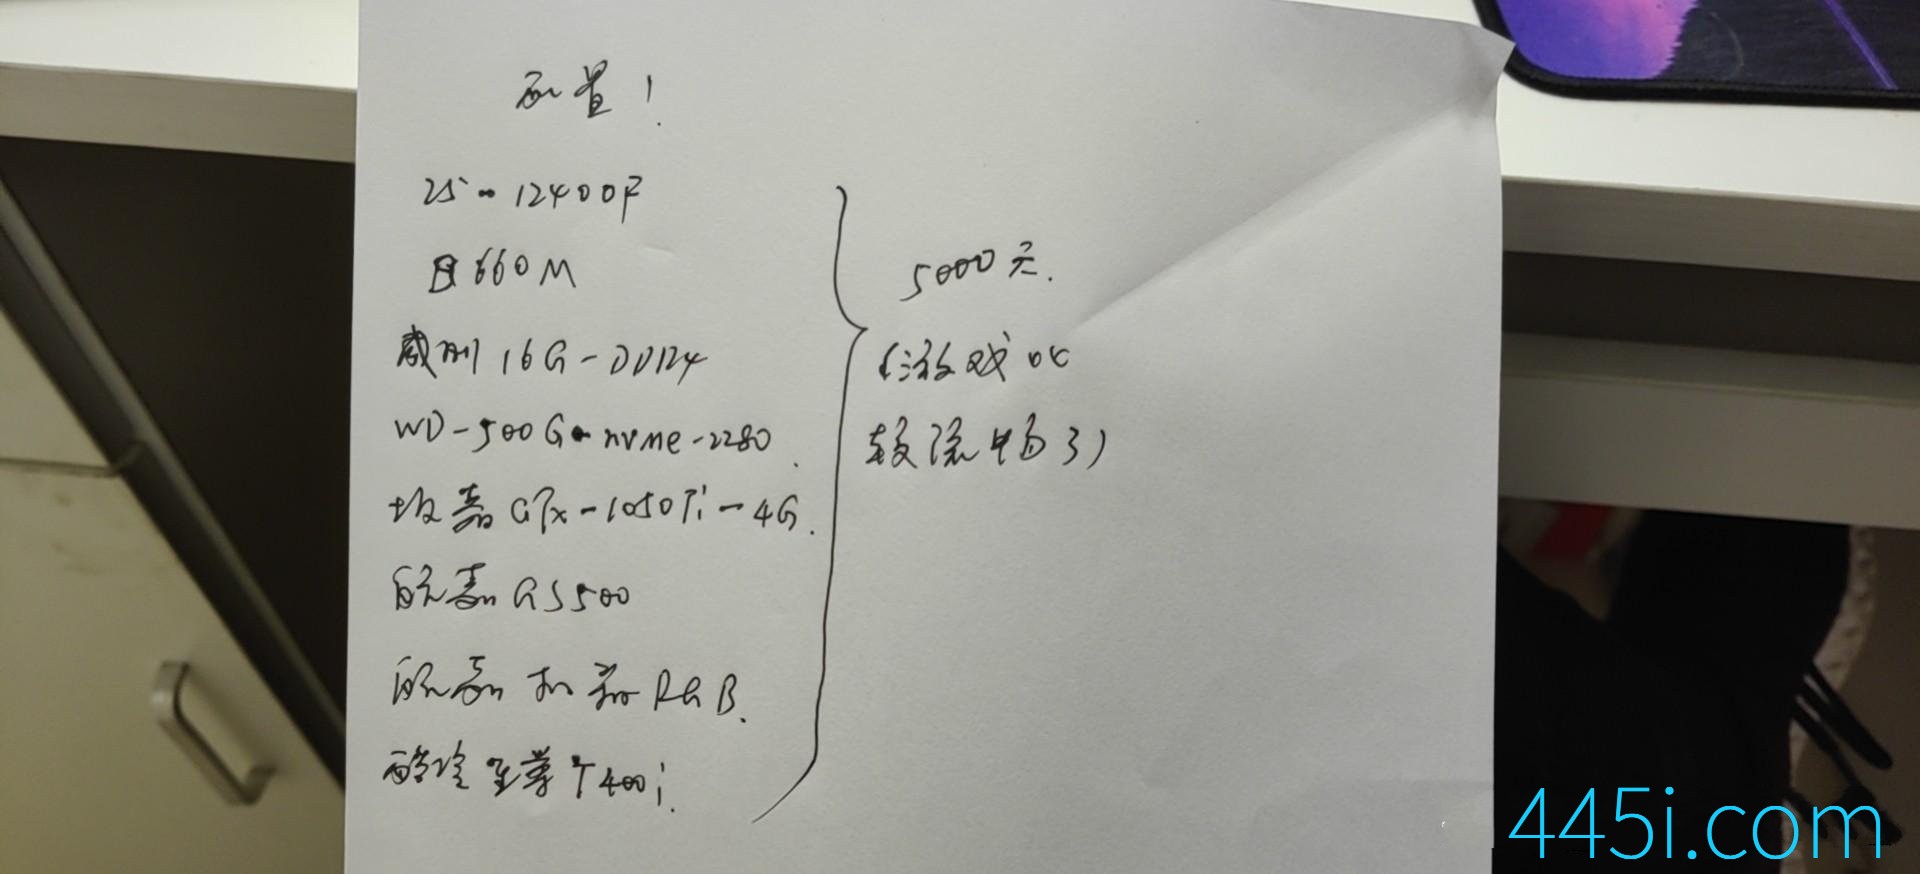 配置！
i5-12400F
B660M
威刚 16G-DDR4
WD-500G-nvme-2280.
GTX-1050Ti-4G.
航嘉 GS500
航嘉 机箱 RGB.
酷冷至尊 T400i.
5000元.
(游戏OK
较流畅了)
445i.com